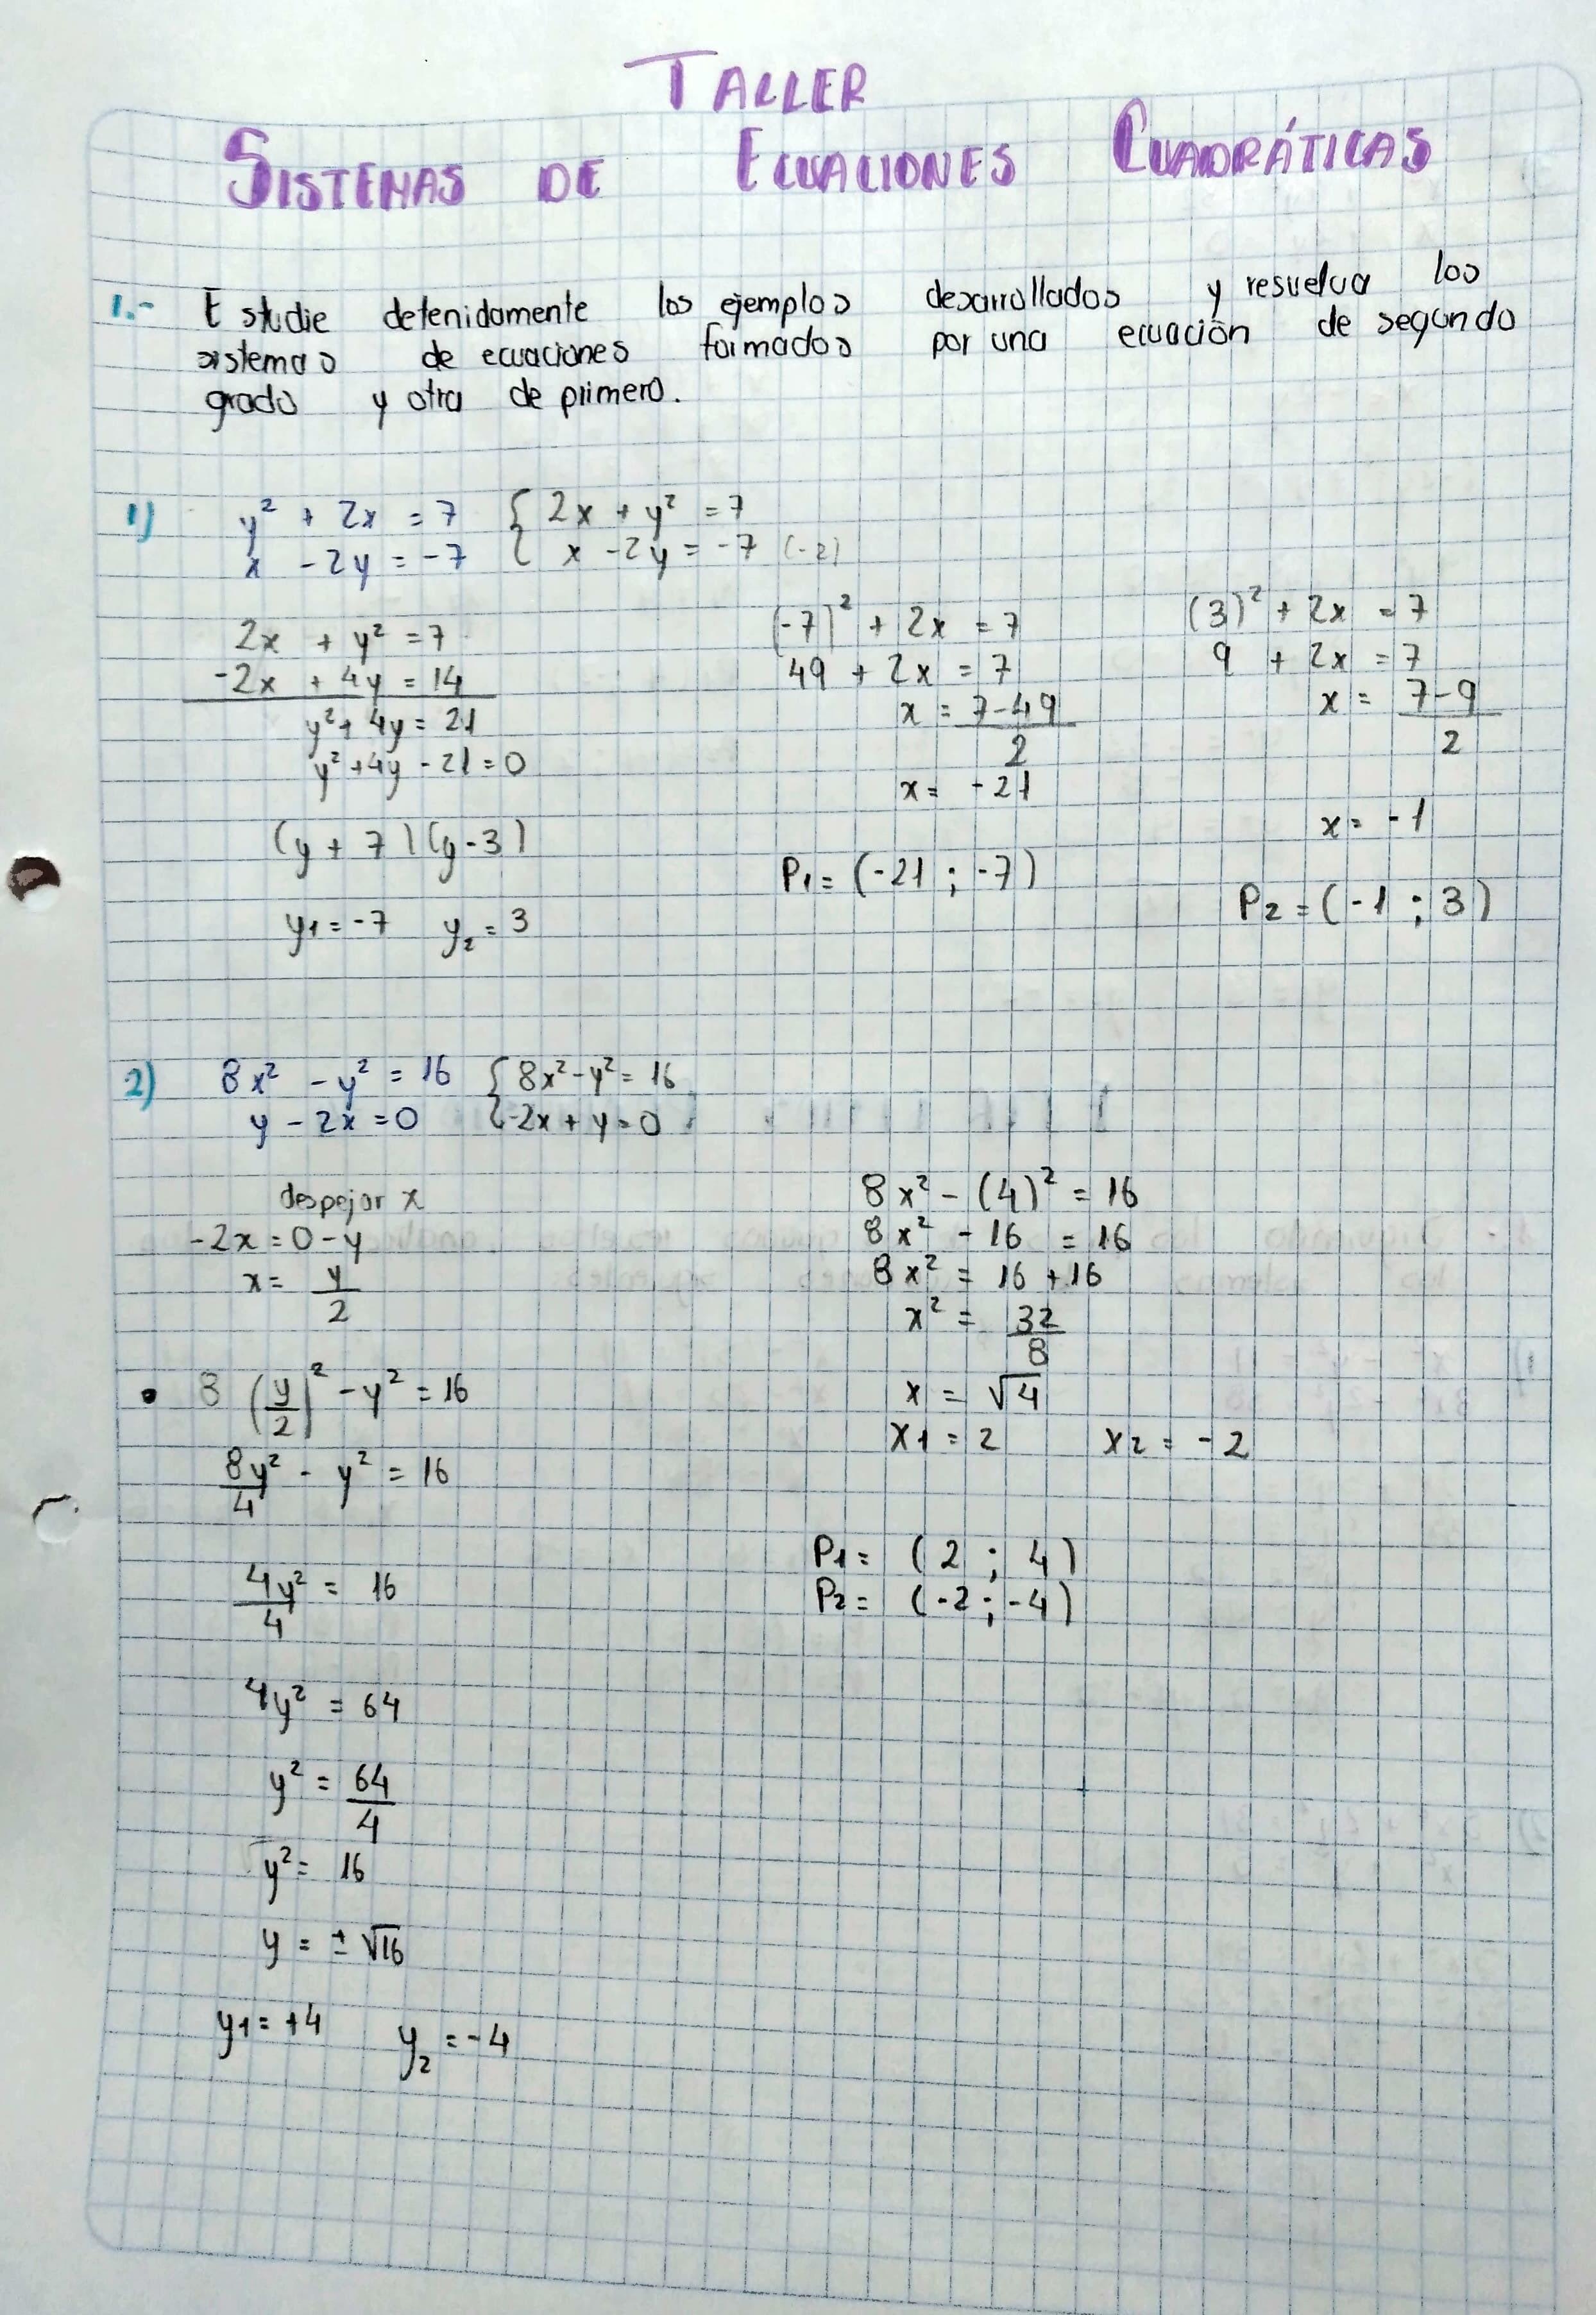 TALLER
SISTEMAS DE ECUACIONES CUADRÁTICAS
1.- Estudie detenidamente los ejemplos desarrollados y resuelva los
sistemas de ecuaciones formados por una ecuación de segundo
grado y otra de primero.
1) y² + 2x = 7 { 2x + y² = 7
x - 2y = -7 { x - 2y = -7 (-2)
2x + y² = 7
-2x + 4y = 14
y² + 4y = 21
y² + 4y - 21 = 0
(y + 7)(y - 3)
y1 = -7 y2 = 3
(-7)² + 2x = 7
49 + 2x = 7
x = 7-49
2
x = -21
P1 = (-21 ; -7)
(3)² + 2x = 7
9 + 2x = 7
x = 7-9
2
x = -1
P2 = (-1 ; 3)
2) 8x² - y² = 16 { 8x² - y² = 16
y - 2x = 0 { -2x + y = 0
despejar x
-2x = 0 - y
x = y
2
• 8 (y/2)² - y² = 16
8y²/4 - y² = 16
4y²/4 = 16
4y² = 64
y² = 64
4
y² = 16
y = ± √16
y1 = +4 y2 = -4
8x² - (4)² = 16
8x² - 16 = 16
8x² = 16 + 16
x² = 32
8
x = √4
x1 = 2 x2 = -2
P1 = (2 ; 4)
P2 = (-2 ; -4)